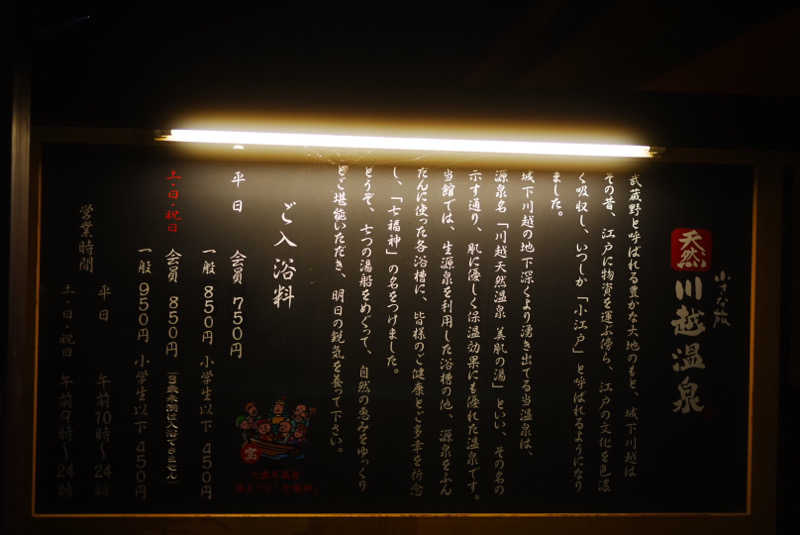 小さな旅
天然 川越温泉
武蔵野と呼ばれる豊かな大地のもと、城下川越は
その昔、江戸に物資を運ぶ傍ら、江戸の文化を色濃
く吸収し、いつしか「小江戸」と呼ばれるようになり
ました。
城下川越の地下深くより湧き出てる当温泉は、
源泉名「川越天然温泉 美肌の湯」といい、その名の
示す通り、肌に優しく保温効果にも優れた温泉です。
当館では、生源泉を利用した浴槽の他、源泉をふん
だんに使った各浴槽に、皆様のご健康とご多幸を祈念
し、「七福神」の名をつけました。
どうぞ、七つの湯船をめぐって、自然の恵みをゆっくり
とご堪能いただき、明日の鋭気を養って下さい。
ご入浴料
平日 会員 750円
一般 850円 小学生以下 450円
土・日・祝日 会員 850円
一般 950円 小学生以下 450円
営業時間 平日 午前10時〜24時
土・日・祝日 午前9時〜24時
宝